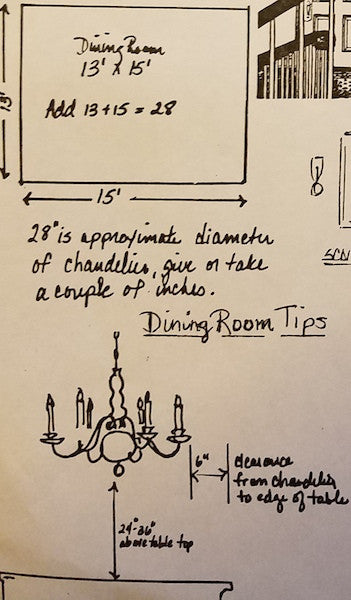 Dining Room
13' X 15'
Add 13 + 15 = 28
13'
15'
28" is approximate diameter
of chandelier, give or take
a couple of inches.
Dining Room Tips
6"
clearance
from chandelier
to edge of table
24"-36"
above table top